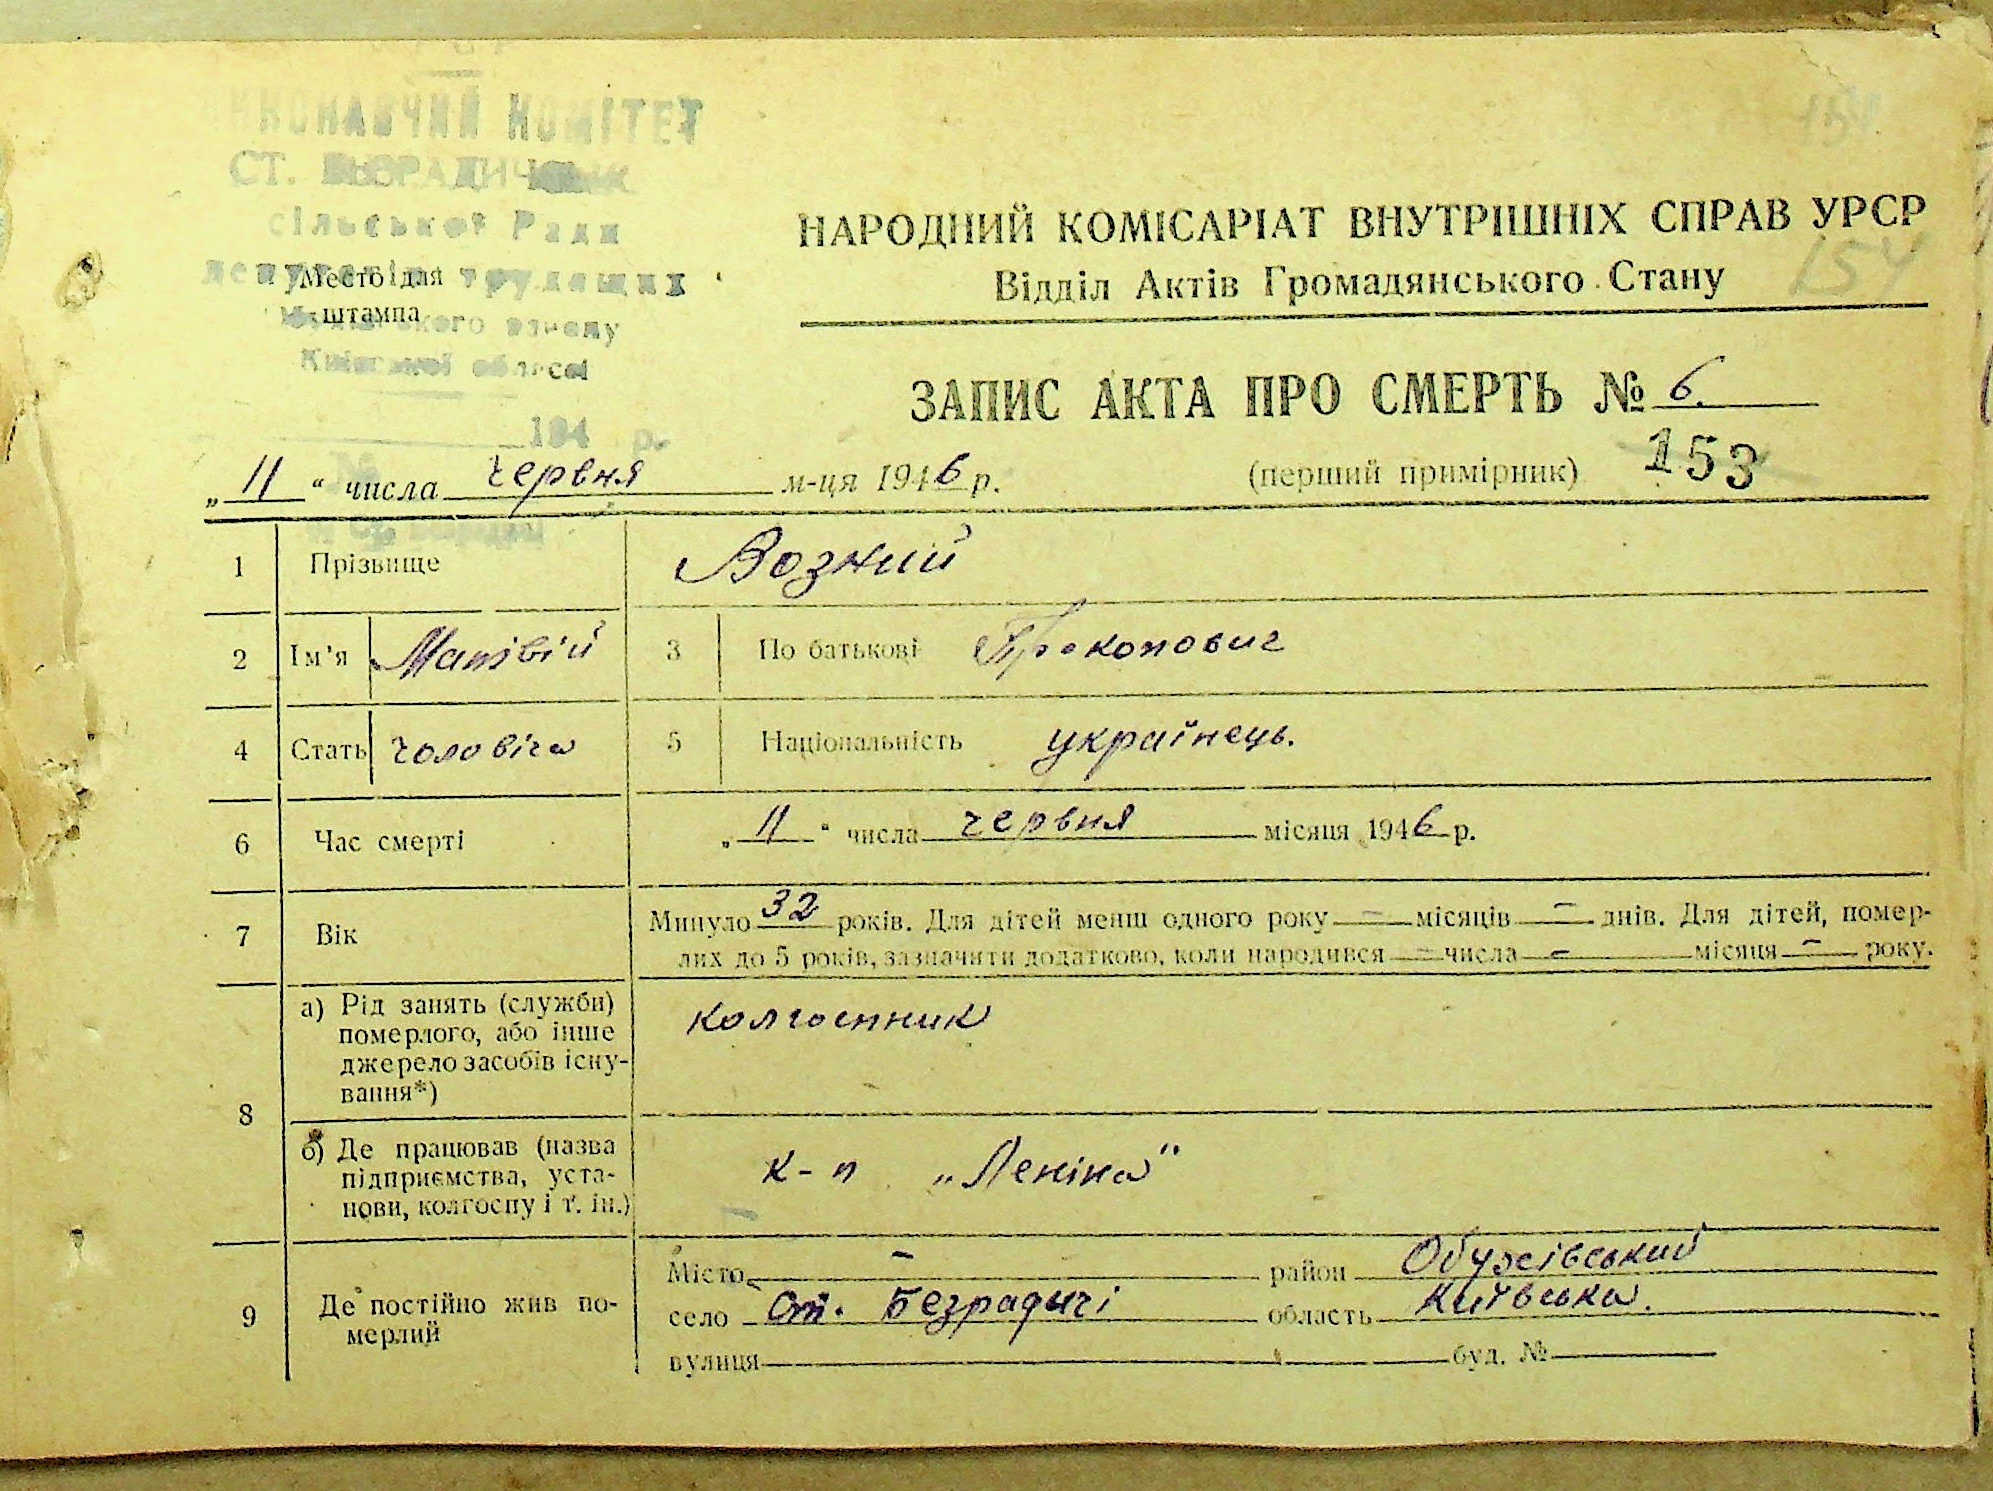 КОМІТЕТ
СТ.
сільської Ради
депутатів трудящих
Место для
штампа
Київської області
194 р.
154
НАРОДНИЙ КОМІСАРІАТ ВНУТРІШНІХ СПРАВ УРСР
154
Відділ Актів Громадянського Стану
ЗАПИС АКТА ПРО СМЕРТЬ № 6.
„ 11 “ числа червня м-ця 1946 р. (перший примірник) 153
1 Прізвище Возний
2 Ім'я Матвій 3 По батькові Прокопович
4 Стать чоловіча 5 Національність українець.
6 Час смерті „ 11 “ числа червня місяця 1946 р.
7 Вік Минуло 32 років. Для дітей менш одного року — місяців — днів. Для дітей, помер-
лих до 5 років, зазначити додатково, коли народився — числа — місяця — року.
8 а) Рід занять (служби)
померлого, або інше
джерело засобів існу-
вання*)
колгоспник
б) Де працював (назва
підприємства, уста-
нови, колгоспу і т. ін.)
к-п „Леніна"
9 Де постійно жив по-
мерлий
Місто — район Обухівський
село Ст. Безрадичі область Київська.
вулиця буд. №